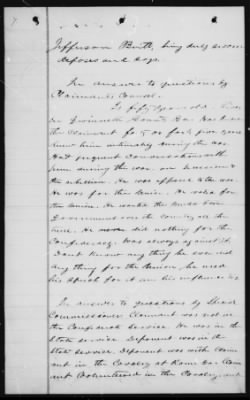 Jefferson Britt, being duly sworn
deposes and says.
In answer to questions by
Claimants Counsel.
Is fifty years old. lives
in Gwinnett County Ga. Has known
the Claimant for or forty five years
knew him intimately during the war
Had frequent conversations with
him during the war, on
the rebellion. He was opposed to the war.
He was for the Union. He voted for
the Union. He wanted the United States
Government over the country all the
time. He never did nothing for the
Confederacy. Was always against it.
Dont know any thing he ever did
any thing for the Union, he used
his speech for it and his influence &c
In answer to questions by Special
Commissioner Claimant was not in
the Confederate service. He was in the
State service. Deponent was in the
State service. Deponent was with Claim
ant in the Cavalry at Rome Ga. Claim
ant Volunteered in the Cavalry, and